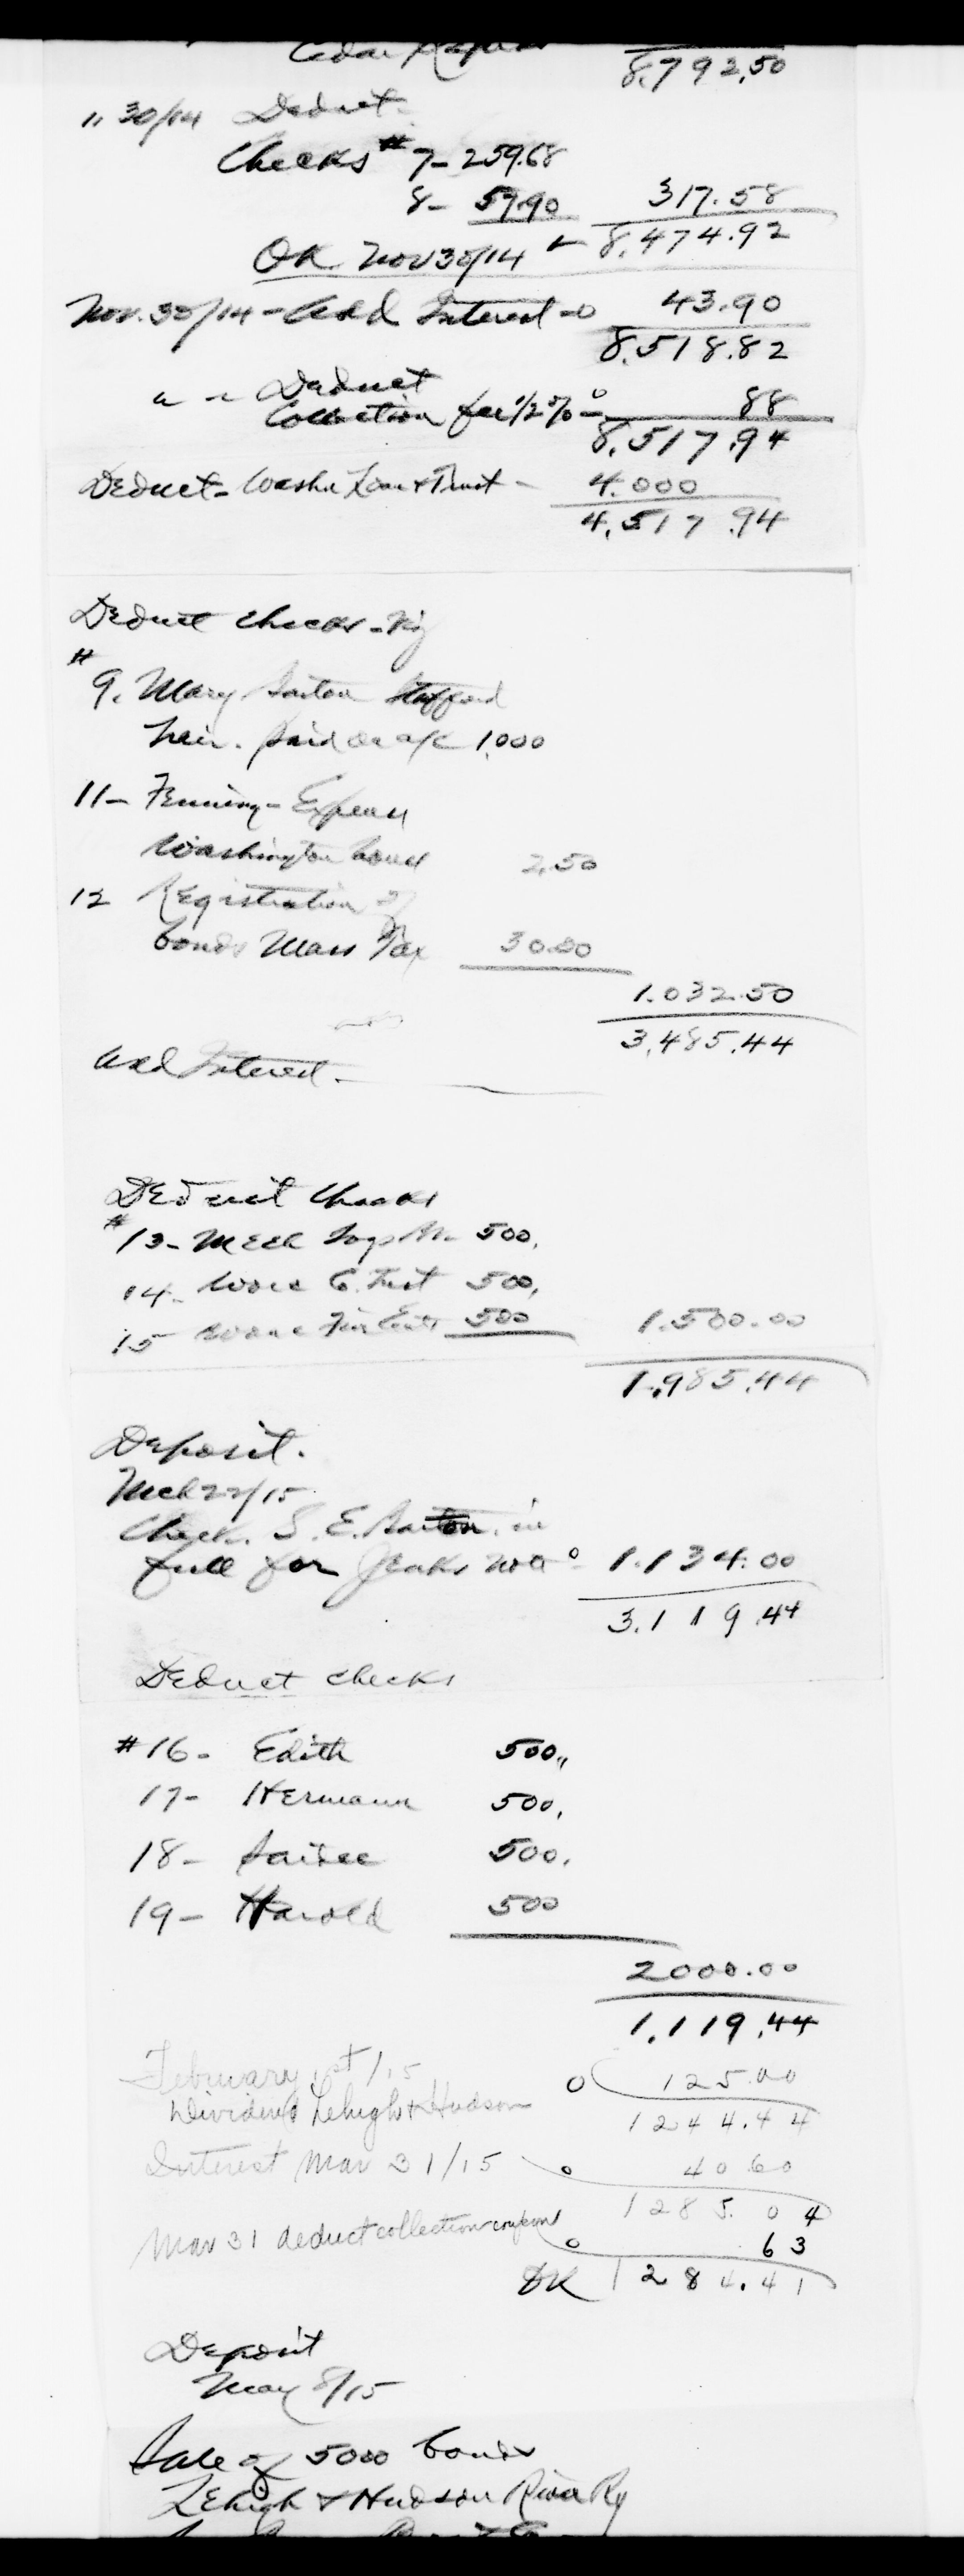 Cedar Rapids
8,792.50
11/30/14 Deduct-
Checks # 7- 259.68
8- 57.90 317.58
OK Nov 30/14 8,474.92
Nov. 30/14 - Add Interest -o 43.90
8,518.82
" " Deduct
Collection fee 1/2 % o 88
8,517.94
Deduct - Washn Loan & Trust - 4.000
4,517.94
Deduct checks -
#
9. Mary Barton Stafford
heir. paid on a/c 1,000
11- Fenning - Expense
Washington bond 2.50
12 Registration of
bonds Mass Tax 30.00
1.032.50
3,485.44
Add Interest.
Deduct Checks
#13- Mech 500.
14- Worc C. Trust 500,
15 Worc 500 1.500.00
1.985.44
Deposit.
Mch 22/15
Check. S. E. Barton. in
full for Jenks note o 1.134.00
3.119.44
Deduct checks
#16- Edith 500,,
17- Hermann 500,
18- Saidee 500.
19- Harold 500
2000.00
1.119.44
February 1st/15 o 125.00
Dividend Lehigh & Hudson 1244.44
Interest Mar 31/15 o 40.60
1285.04
Mar 31 deduct collection coupons o 63
OK 1284.41
Deposit
May 8/15
Sale of 5000 bonds
Lehigh & Hudson River Ry